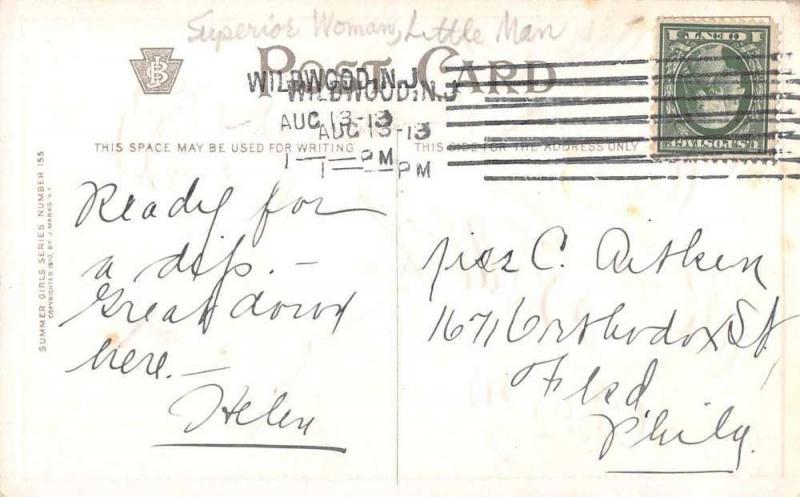 Superior Woman, Little Man
POST CARD
WILDWOOD, N.J.
WILDWOOD, N.J
AUG 13-13
AUG 13-13
1 — PM
1 — PM
THIS SPACE MAY BE USED FOR WRITING
THIS SIDE FOR THE ADDRESS ONLY
SUMMER GIRLS SERIES NUMBER 155
COPYRIGHTED 1910, BY J. MARKS N.Y.
Ready for
a dip. —
Great down
here. —
Helen
Miss C. Aitken
1671 Orthodox St,
Fkd
Phily.